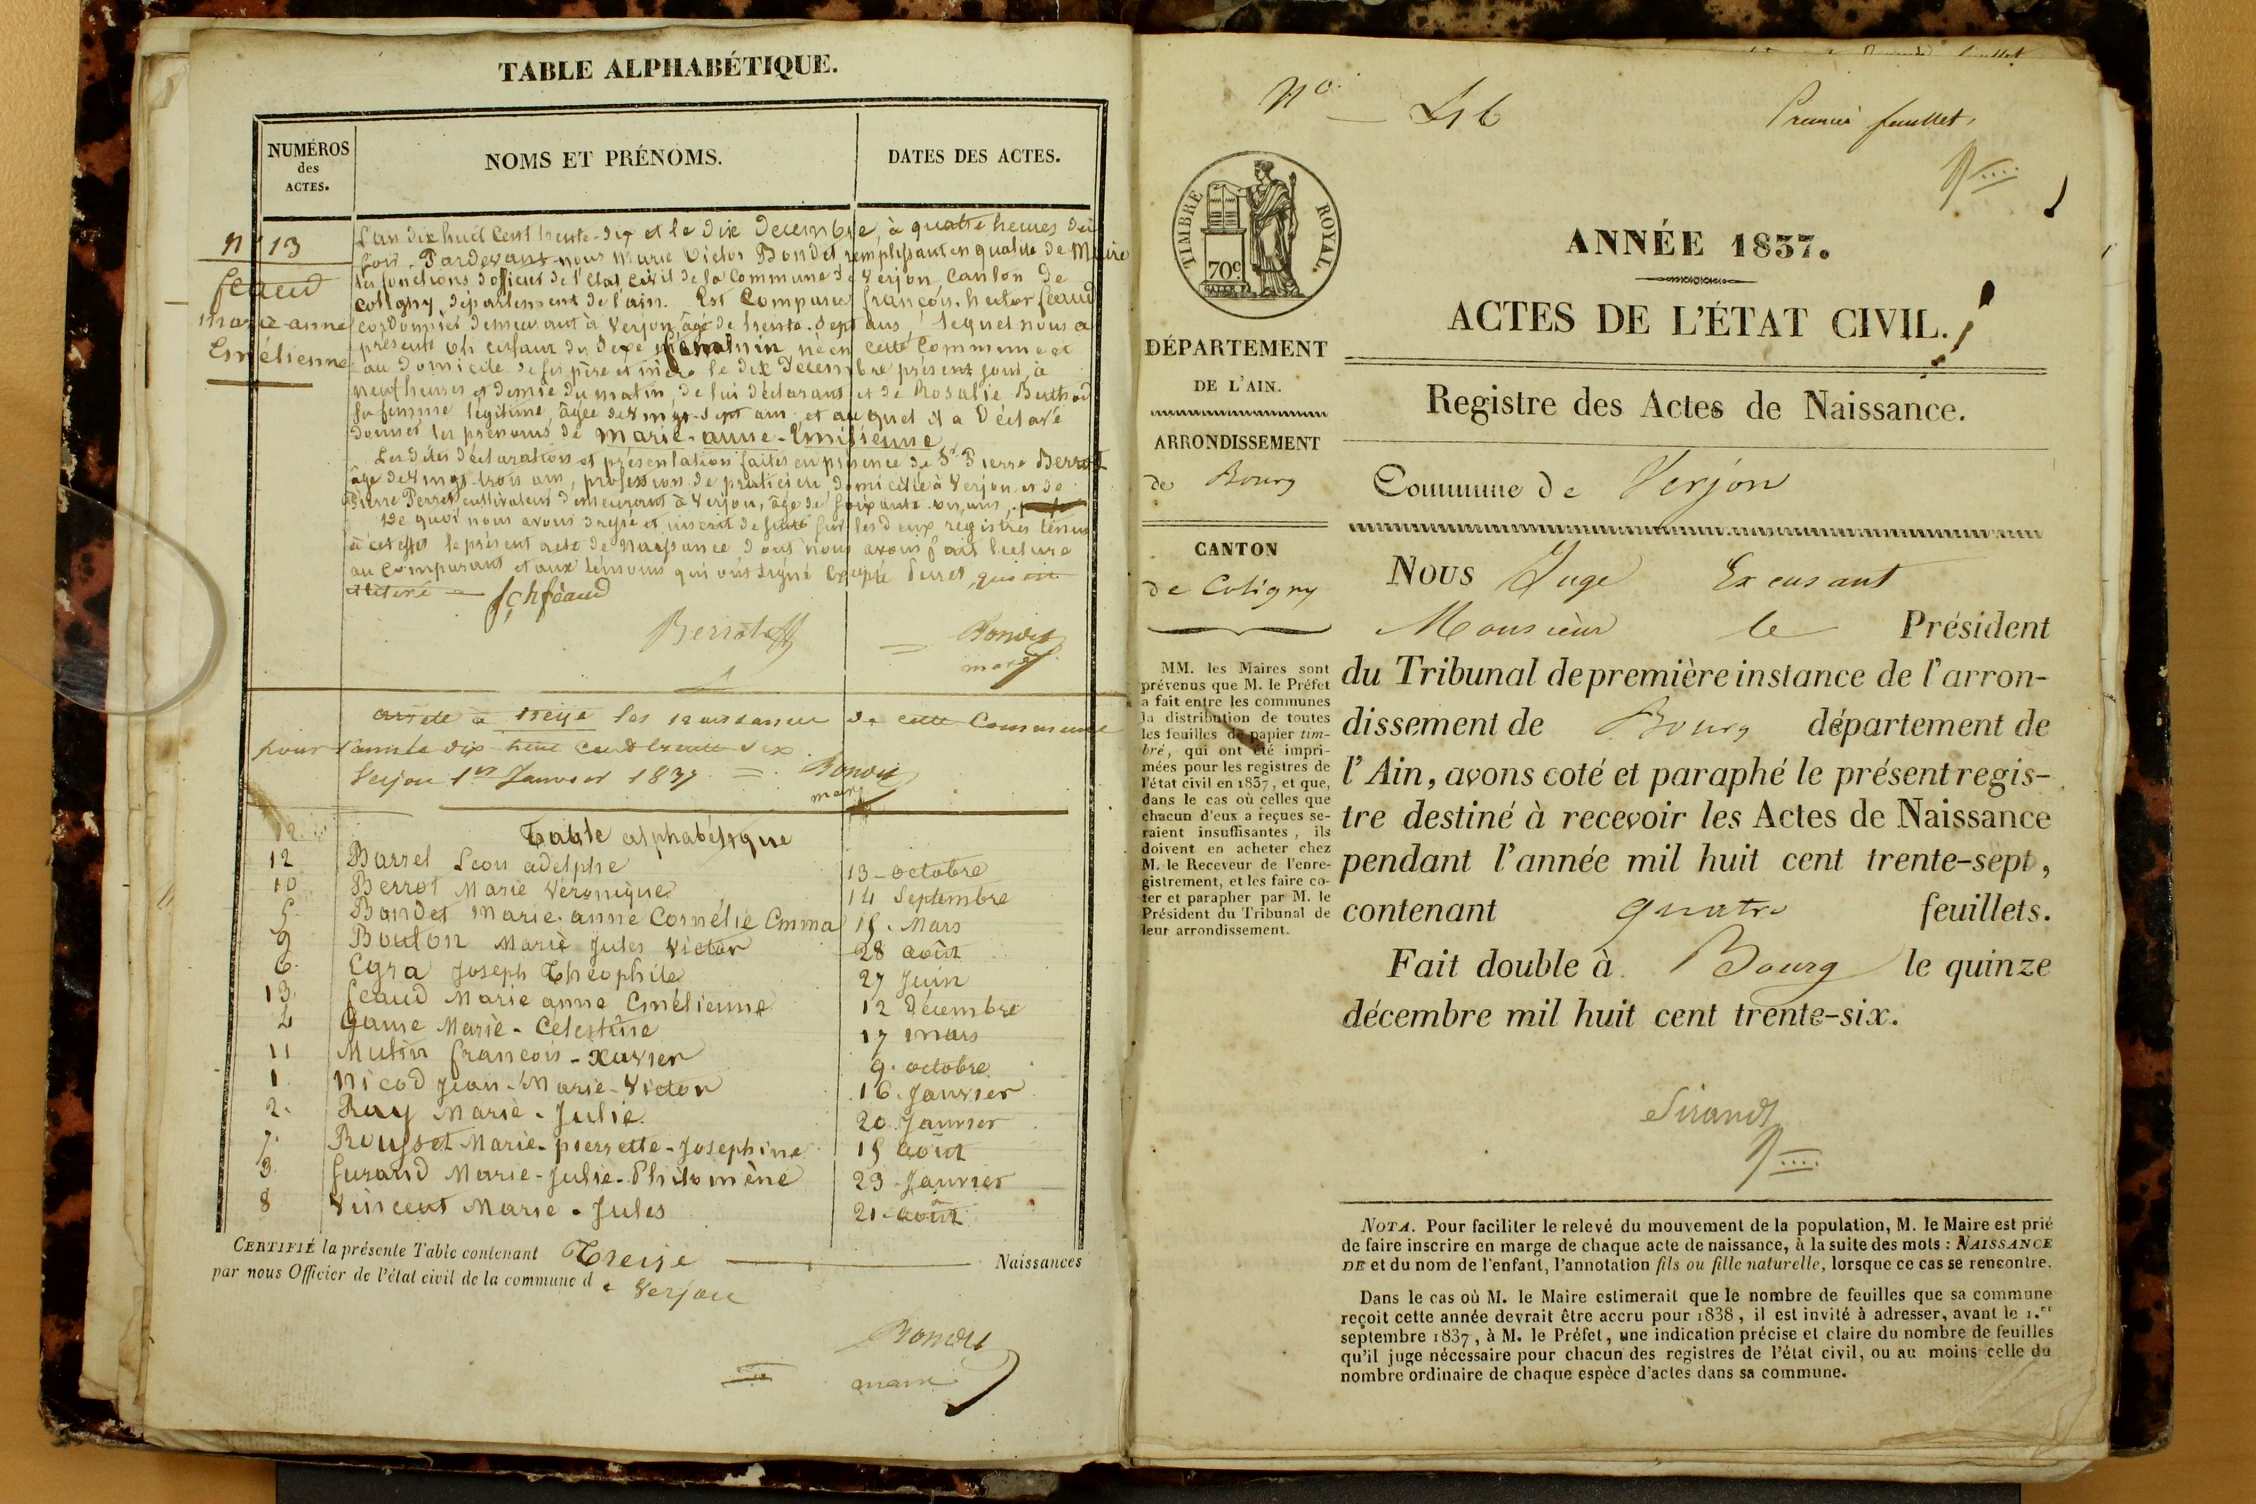 TABLE ALPHABÉTIQUE.
NUMÉROS
des
ACTES.
NOMS ET PRÉNOMS.
DATES DES ACTES.
N° 13
feaud
marie-anne
Emélienne
L'an dix huit cent trente-six et le dix Decembre, à quatre heures du
soir. Pardevant nous Marie Victor Bondet remplissant en qualité de Maire
les fonctions d'officier de l'Etat civil de la Commune de Verjon, Canton de
Coligny, département de l'ain. Est Comparu françois hector feaud
cordonnier demeurant à Verjon, âgé de trente-sept ans, lequel nous a
présenté un enfant du sexe féminin né en cette Commune et
au domicile de ses père et mère le dix Decembre présent jour, à
neuf heures et demie du matin, de lui déclarant et de Rosalie Berthod
sa femme légitime, âgée de vingt-sept ans et auquel il a Déclaré
donner les prénoms de marie-anne-Emélienne
Les dites déclaration et présentation faites en présence de Sr Pierre Berrot
âgé de vingt-trois ans, profession de praticien, domicilié à Verjon et de
Pierre Perret cultivateur demeurant à Verjon, âgé de soixante ans,
De quoi nous avons dressé et inscrit de suite sur les deux registres tenus
à cet effet le présent acte de naissance dont nous avons fait lecture
au comparant et aux témoins qui ont signé Excepté Perret, qui est
illitéré — fçh feaud
Berrot
Bondet
maire
arrêté à treize les naissances de cette Commune
pour l'année dix huit cent trente six
Verjon 1er Janvier 1837 = Bondet
maire
Table alphabétique
12 Barrel Leon adelphe 13 - octobre
10 Berrot Marie Véronique 14 Septembre
5 Bondet Marie-anne Cornélie Emma 15. Mars
9 Bouton Marie Jules Victor 28 août
6 Egra Joseph Théophile 27 Juin
13 feaud Marie anne Emélienne 12 Décembre
4 Game Marie - Celestine 17 mars
11 Mutin francois - xavier 9. octobre
1 Nicod Jean - Marie - Victor 16. Janvier
2. Ray Marie - Julie 20 Janvier
7. Rousset Marie - pierrette - Josephine 15 août
3 Jurand Marie - Julie - Philomène 23 - Janvier
8 Vincent Marie - Jules 21. août
CERTIFIÉ la présente Table contenant Treize Naissances
par nous Officier de l'état civil de la commune de Verjon
Bondet
maire
N° 46
Premier feuillet.
TIMBRE ROYAL.
70c
ANNÉE 1837.
ACTES DE L'ÉTAT CIVIL.
Registre des Actes de Naissance.
DÉPARTEMENT
DE L'AIN.
ARRONDISSEMENT
de Bourg
CANTON
de Coligny
MM. les Maires sont
prévenus que M. le Préfet
a fait entre les communes
la distribution de toutes
les feuilles de papier tim-
bré, qui ont été impri-
mées pour les registres de
l'état civil en 1837, et que,
dans le cas où celles que
chacun d'eux a reçues se-
raient insuffisantes, ils
doivent en acheter chez
M. le Receveur de l'enre-
gistrement, et les faire co-
ter et parapher par M. le
Président du Tribunal de
leur arrondissement.
Commune de Verjon
NOUS Juge Excusant
Monsieur le Président
du Tribunal de première instance de l'arron-
dissement de Bourg département de
l'Ain, avons coté et paraphé le présent regis-
tre destiné à recevoir les Actes de Naissance
pendant l'année mil huit cent trente-sept,
contenant quatre feuillets.
Fait double à Bourg le quinze
décembre mil huit cent trente-six.
Sirand
NOTA. Pour faciliter le relevé du mouvement de la population, M. le Maire est prié
de faire inscrire en marge de chaque acte de naissance, à la suite des mots : NAISSANCE
DE et du nom de l'enfant, l'annotation fils ou fille naturelle, lorsque ce cas se rencontre.
Dans le cas où M. le Maire estimerait que le nombre de feuilles que sa commune
reçoit cette année devrait être accru pour 1838, il est invité à adresser, avant le 1.er
septembre 1837, à M. le Préfet, une indication précise et claire du nombre de feuilles
qu'il juge nécessaire pour chacun des registres de l'état civil, ou au moins celle du
nombre ordinaire de chaque espèce d'actes dans sa commune.